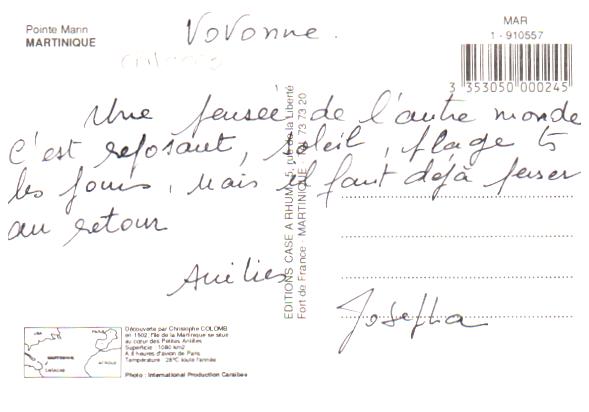 Pointe Marin
MARTINIQUE
Vovonne.
MAR
1 - 910557
3 353050 000245
Une pensée de l'autre monde
c'est reposant, soleil, plage ts
les jours, mais il faut déjà penser
au retour
Amitiés
Josepha
EDITIONS CASE A RHUM - 5, rue de la Liberté
Fort de France - MARTINIQUE - Tél. 73 73 20
MARTINIQUE
Découverte par Christophe COLOMB
en 1502, l'île de la Martinique se situe
au cœur des Petites Antilles
Superficie : 1080 km2
A 8 heures d'avion de Paris
Température : 28°C toute l'année
Photo : International Production Caraïbes